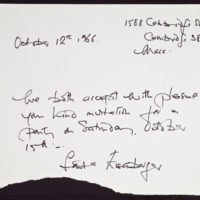 1588 Cambridge St
Cambridge 38
October 12th 1966.
Mass.
We both accept with pleasure
your kind invitation for a
party on Saturday, October
15th -.